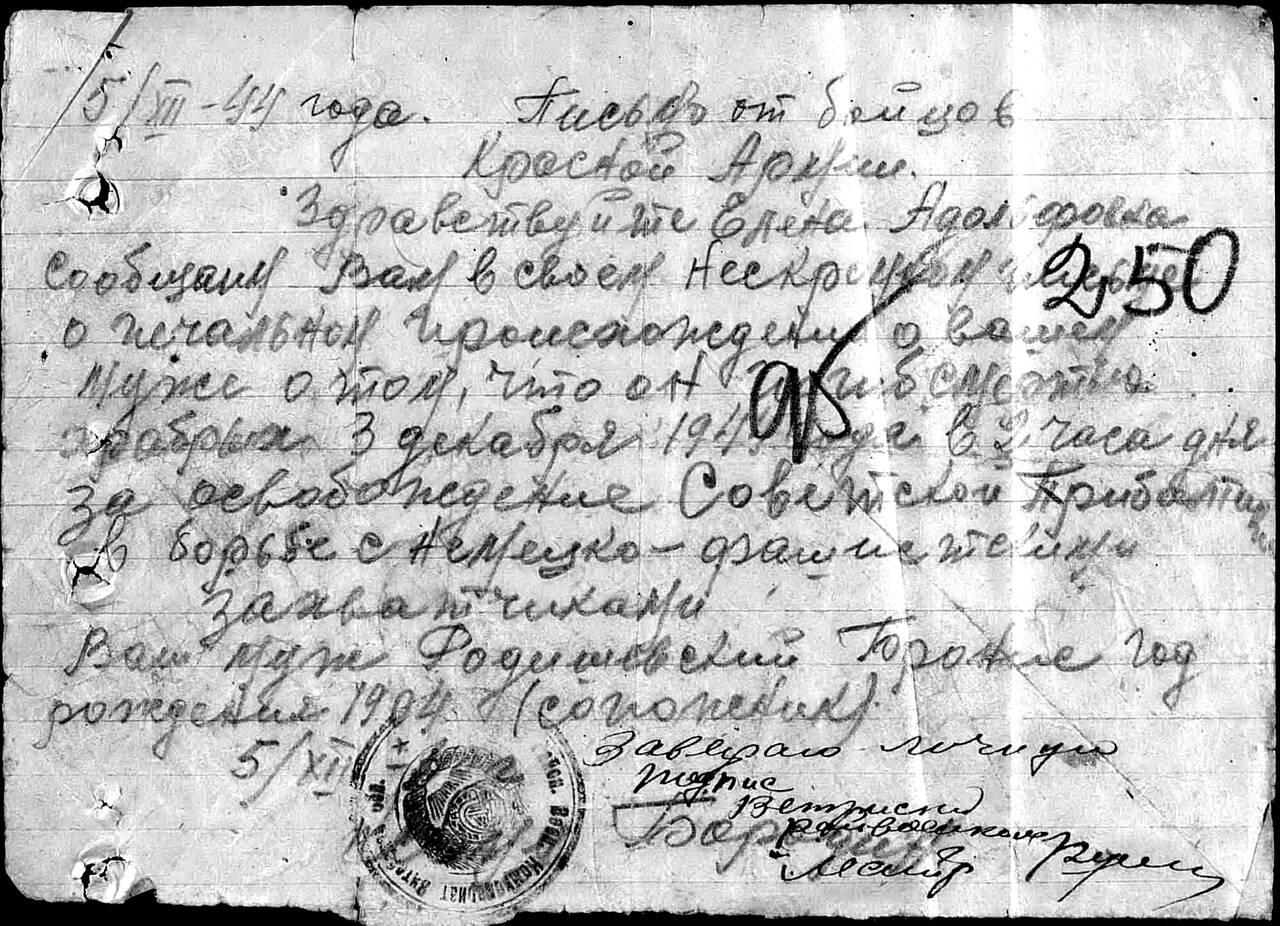 5/XII-44 года. Письмо от бойцов
Красной Армии.
Здравствуйте Елена Адольфовна
Сообщаем Вам в своем нескромном письме
250
о печальном происхождении о вашем
муже о том, что он погиб смертью
храбрых 3 декабря 194 года в 2 часа дня
за освобождение Советской Прибалтики
в борьбе с немецко-фашистскими
захватчиками
Ваш муж год
рождения 1904 (сапожник).
5/XII
Заверяю личную
подпис
райвоенком